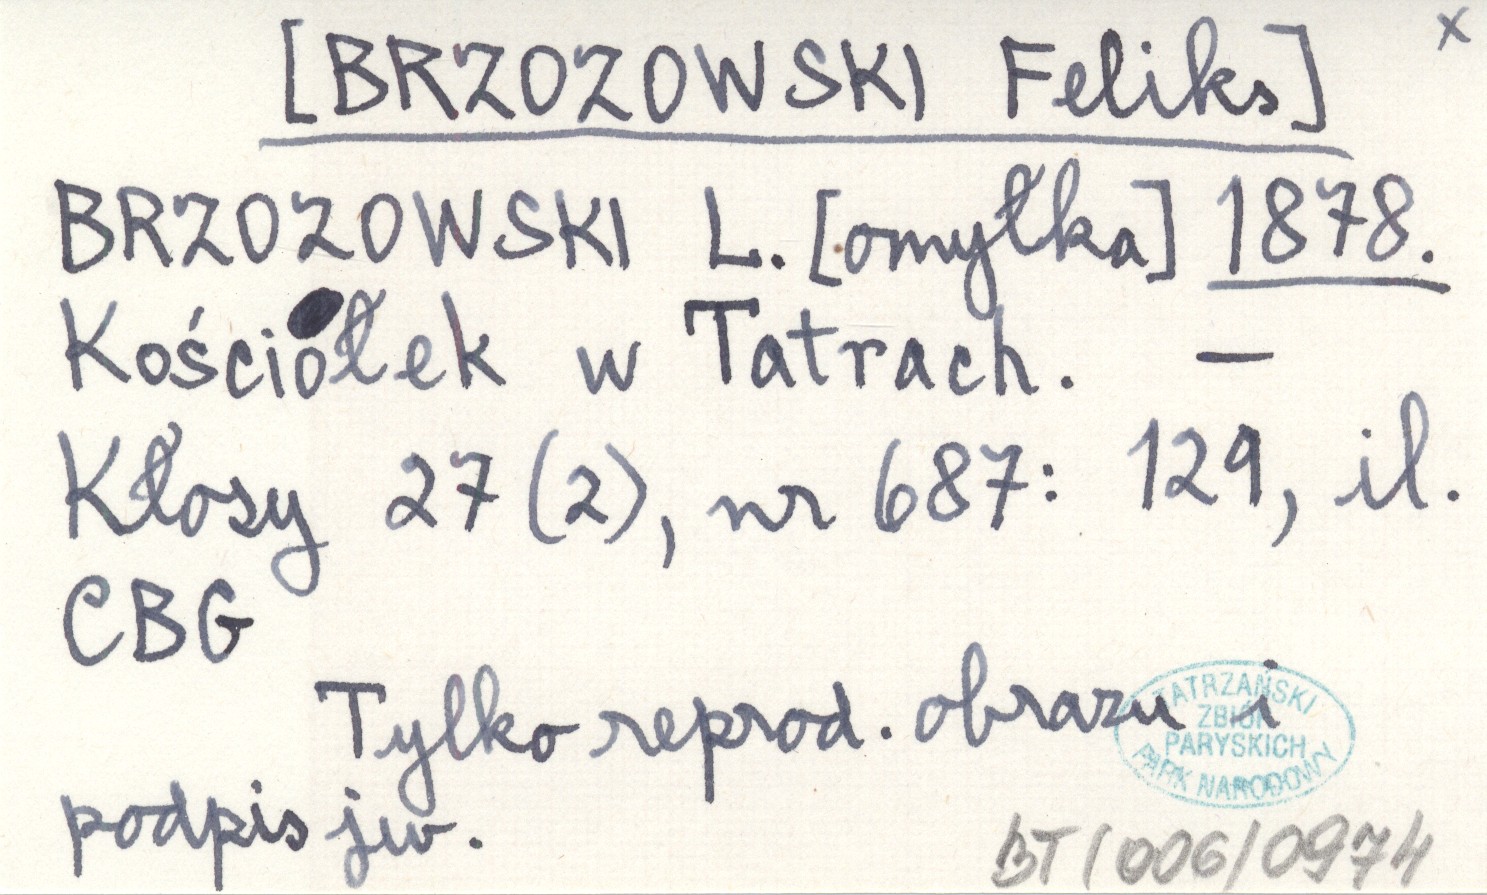 [BRZOZOWSKI Feliks]
x
BRZOZOWSKI L. [omyłka] 1878.
Kościołek w Tatrach. —
Kłosy 27 (2), nr 687: 129, il.
CBG
Tylko reprod. obrazu i
podpis jw.
TATRZAŃSKI
ZBIÓR
PARYSKICH
PARK NARODOWY
BT/006/0974